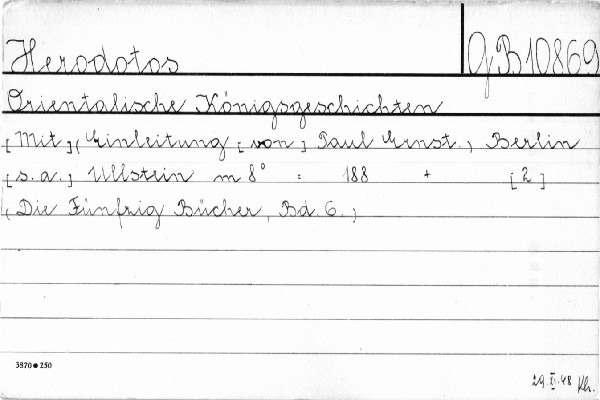 Herodotos
GB 10869
Orientalische Königsgeschichten
[Mit] (Einleitung [von] Paul Ernst.) Berlin
[s.a.] Ullstein m 8° = 188 + [2]
(Die Fünfzig Bücher, Bd. 6.)
3870 ● 250
29. XI. 48 Kh.